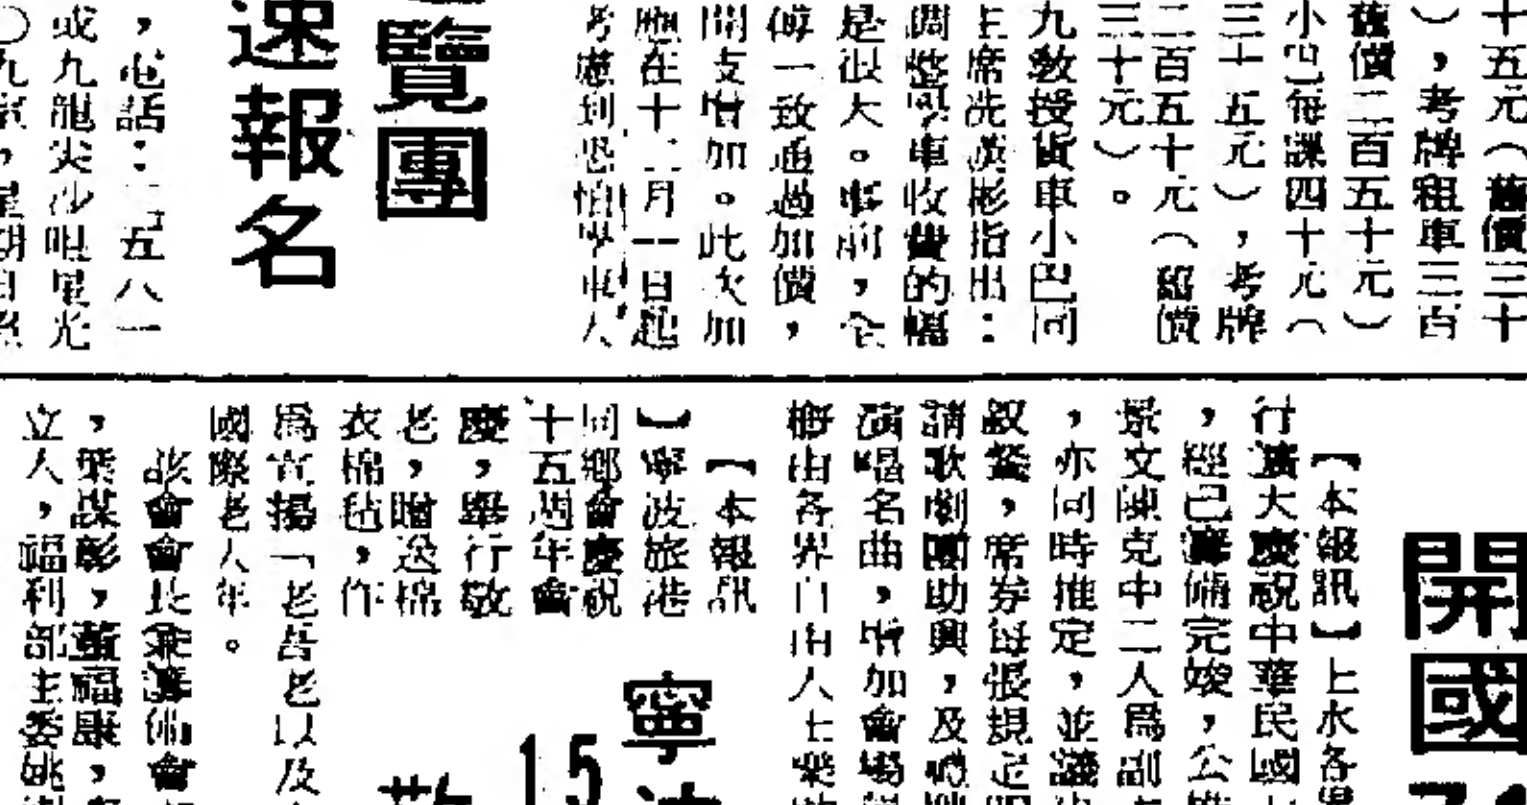 十五元（舊價三十
），考牌租車三百
舊價二百五十元）
小巴每課四十元（
三十五元），考牌
二百五十元（舊價
三十元）。
九教授貨車小巴同
主席冼茂彬指出：
調整學車收費的幅
是很大。事前，全
傅一致通過加價，
開支增加。此次加
應在十二月一日起
考慮到恐怕學車人
覽團
速報名
，電話：三五八一
或九龍尖沙咀星光
行
【本報訊】上水各
行廣大慶祝中華民國
，經已籌備完竣，公推
景文陳克中二人為副
，亦同時推定，並議
敘餐，席券每張規定
請歌劇團助興，及聘
演唱名曲，增加會場
由各界自由人士樂
開國
【本報訊
】寧波旅港
同鄉會慶祝
十五週年會
慶，舉行敬
老，贈送棉
衣棉毡，作
為宣揚「老吾老以及
國際老人年。
寧
15
該會會長兼籌備會
，葉謀彰，董福康，
立人，福利部主委姚